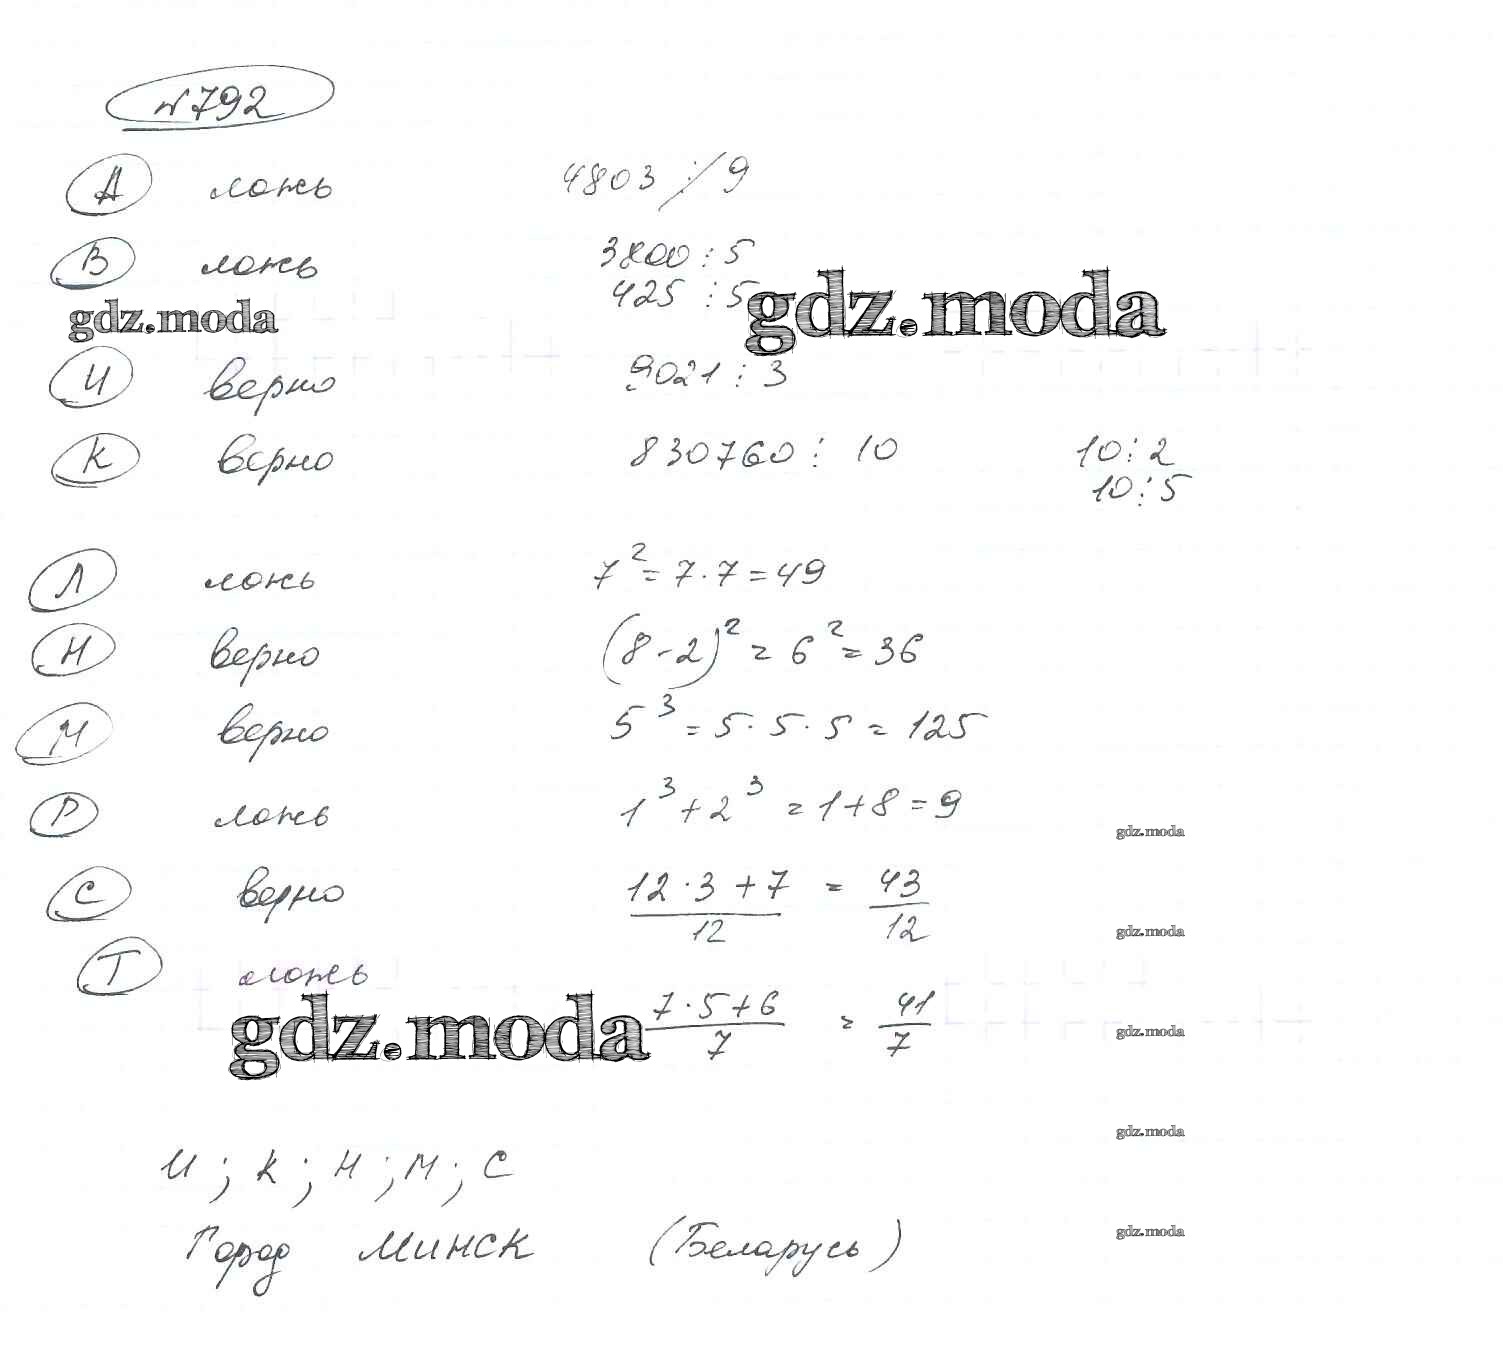 №792
А ложь 4803 ⋮̸ 9
В ложь 3800 ⋮ 5
425 ⋮ 5
gdz.moda gdz.moda
И верно 9021 ⋮ 3
К верно 830760 ⋮ 10 10 ⋮ 2
10 ⋮ 5
Л ложь 7² = 7 · 7 = 49
Н верно (8 - 2)² = 6² = 36
М верно 5³ = 5 · 5 · 5 = 125
Р ложь 1³ + 2³ = 1 + 8 = 9
gdz.moda
С верно (12 · 3 + 7)/12 = 43/12
gdz.moda
Т ложь
gdz.moda (7 · 5 + 6)/7 = 41/7
gdz.moda
gdz.moda
И ; К ; Н ; М ; С
Город Минск (Беларусь)
gdz.moda